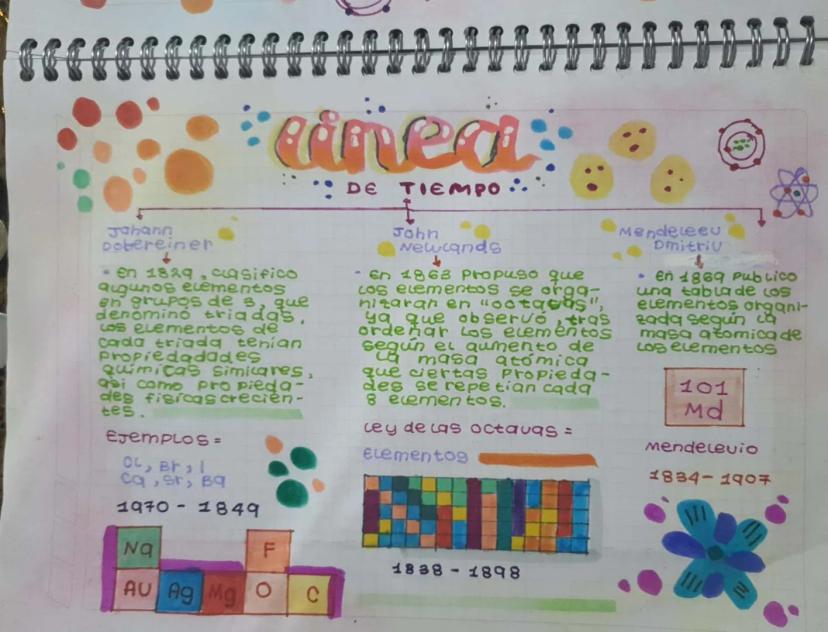 Linea
DE TIEMPO
Johann
Dobereiner
• En 1829, clasifico
algunos elementos
en grupos de 3, que
denominó triadas,
los elementos de
cada triada tenian
propiedadades
quimicas similares,
asi como propieda-
des fisicas crecien-
tes.
Ejemplos =
CL, Br, I
Ca, Sr, Ba
1970 - 1849
Na F
AU Ag Mg O C
John
Newlands
• En 1863 propuso que
los elementos se orga-
nizaran en "octavas",
ya que observó, tras
ordenar los elementos
según el aumento de
la masa atómica
que ciertas propieda-
des se repetian cada
8 elementos.
Ley de las octavas =
Elementos
1838 - 1898
Mendeleev
Dmitriv
• En 1869 publico
una tabla de los
elementos organi-
zada según la
masa atomica de
los elementos
101
Md
Mendelevio
1834-1907